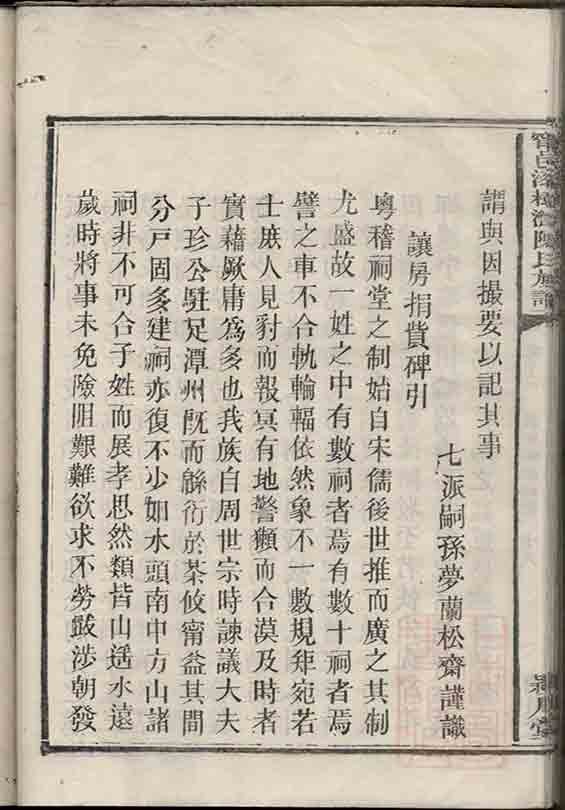 謂與因撮要以記其事
七派嗣孫夢蘭松齋謹識
讓房捐貲碑引
粵稽祠堂之制始自宋儒後世推而廣之其制
尤盛故一姓之中有數祠者焉有數十祠者焉
譬之車不合軌輪輻依然象不一數規矩宛若
士庶人見豺而報冥有地警獺而合漠及時者
實藉厥庸為多也我族自周世宗時諫議大夫
子珍公駐足潭州既而緜衍於茶攸甯益其間
分戸固多建祠亦復不少如水頭南中方山諸
祠非不可合子姓而展孝思然類皆山遙水遠
歲時將事未免險阻艱難欲求不勞跋涉朝發